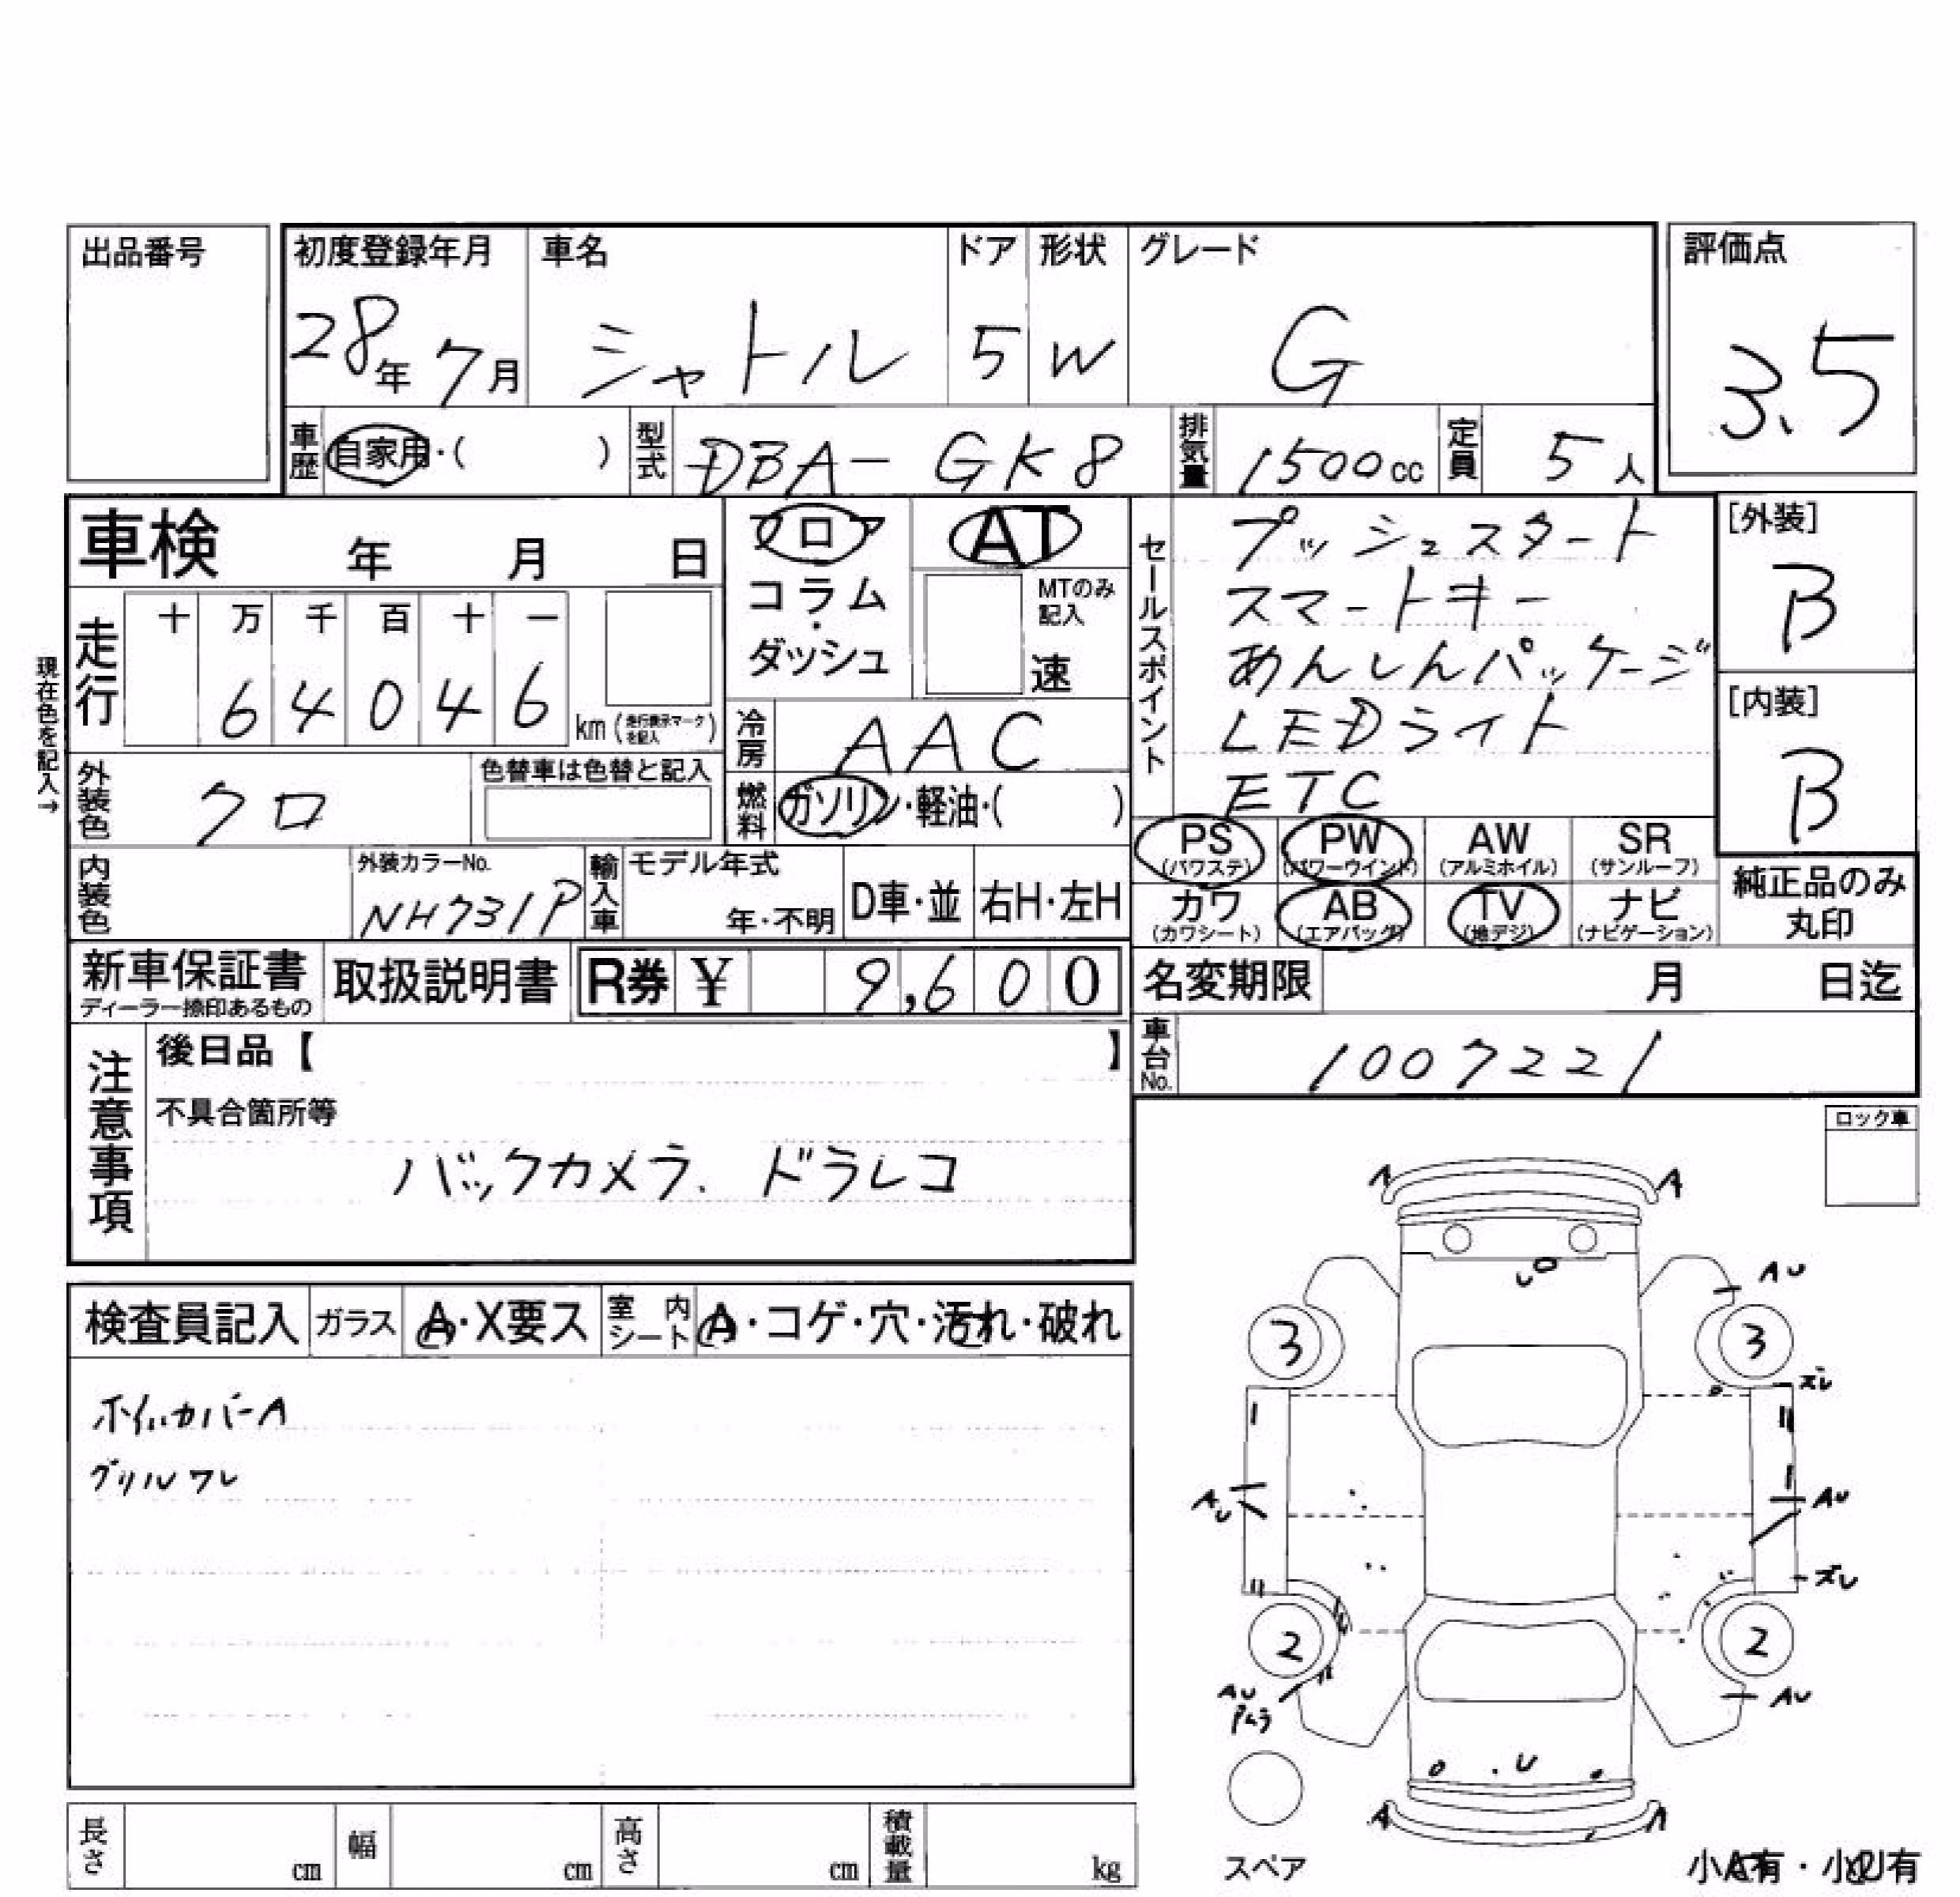 出品番号
初度登録年月 車名 ドア 形状 グレード 評価点
28年 7月 シャトル 5 W G 3.5
車歴 自家用・( ) 型式 DBA-GK8 排気量 1500cc 定員 5人
車検 年 月 日
フロア AT
コラム・ダッシュ
MTのみ記入
速
セールスポイント
プッシュスタート
スマートキー
あんしんパッケージ
LEDライト
ETC
[外装]
B
[内装]
B
現在色を記入→
走行 十 万 千 百 十 一
6 4 0 4 6 km (走行表示マークを記入)
冷房 AAC
外装色 クロ 色替車は色替と記入
燃料 ガソリン・軽油・( )
PS (パワステ) PW (パワーウインド) AW (アルミホイル) SR (サンルーフ)
カワ (カワシート) AB (エアバッグ) TV (地デジ) ナビ (ナビゲーション)
純正品のみ丸印
内装色 外装カラーNo. NH731P 輸入車 モデル年式 年・不明 D車・並 右H・左H
新車保証書 ディーラー捺印あるもの 取扱説明書 R券 ¥ 9,600
名変期限 月 日迄
車台No. 1007221
注意事項
後日品【 】
不具合箇所等
バックカメラ. ドラレコ
ロック車
検査員記入 ガラス A・X要ス 室内シート A・コゲ・穴・汚れ・破れ
ホイルカバーA
グリルワレ
A A
AU
3 3
ズレ
AU AU
ズレ
2 2
AU AU
U
A A
スペア
小A有・小U有
長さ cm 幅 cm 高さ cm 積載量 kg